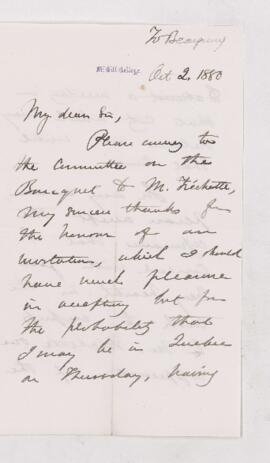 McGill College
Oct 2. 1880
My dear Sir,
Please convey to
the Committee on the
Banquet to M. Fréchette,
my sincere thanks for
the honour of an
invitation, which I should
have much pleasure
in accepting but for
the probability that
I may be in Quebec
on Thursday, having